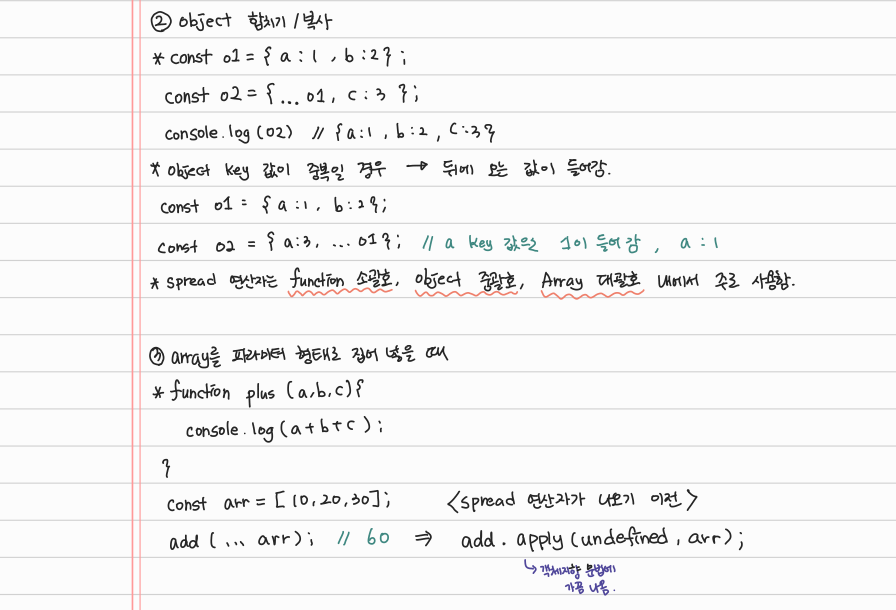 ② object 합치기 / 복사
* const o1 = { a : 1 , b : 2 } ;
const o2 = { ... o1, c : 3 };
console.log (o2) // { a:1 , b:2 , c:3 }
* object key 값이 중복일 경우 → 뒤에 오는 값이 들어감.
const o1 = { a : 1 , b : 2 };
const o2 = { a:3, ... o1 }; // a key 값은 1이 들어감 , a : 1
* spread 연산자는 function 소괄호, object 중괄호, Array 대괄호 내에서 주로 사용함.
③ array를 파라미터 형태로 집어 넣을 때
* function plus (a,b,c) {
console.log (a+b+c) ;
}
const arr = [ 10, 20, 30 ] ; <spread 연산자가 나오기 이전>
add ( ... arr) ; // 60 ⇒ add . apply (undefined , arr) ;
↳ 객체지향 문법에
가끔 나옴.